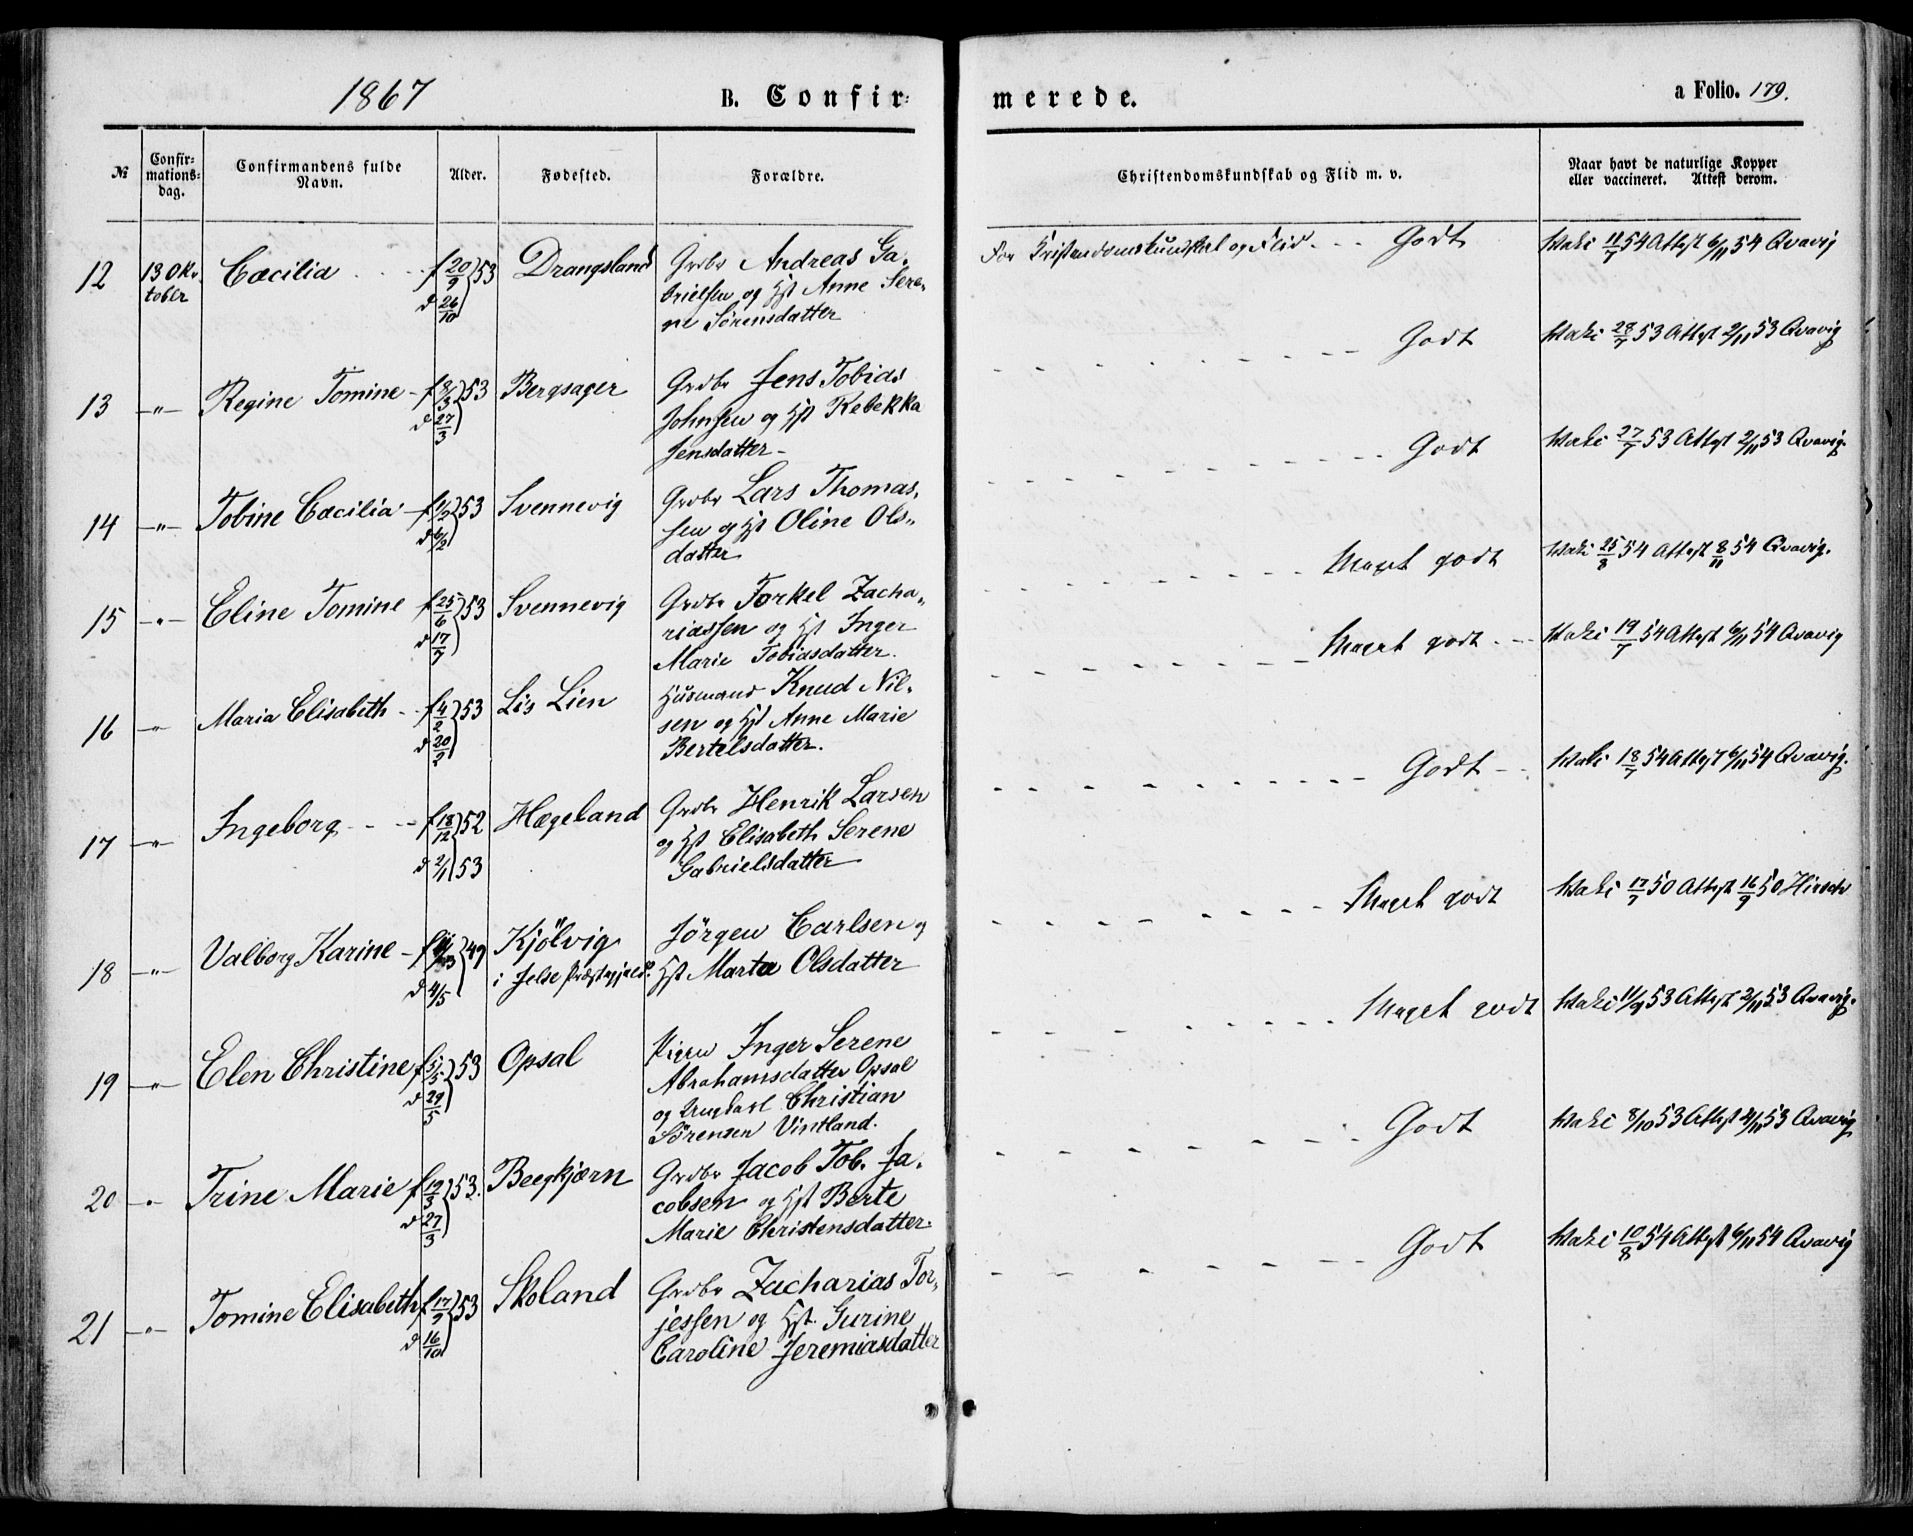 1867 B. Confir= merede. a Folio. 179.
№ Confir=mations=dag. Confirmandens fulde Navn. Alder. Fødested. Forældre. Christendomskundskab og Flid m. v. Naar havt de naturlige Kopper eller vaccineret. Attest derom.
12 13 Oktober Cæcilia f 20/9 53 d 26/10 Drangsland Grdbr Andreas Ga-
brielsen og Hst Anne Sere-
ne Sörensdatter
For Kristendomskundskab og Flid - - - Godt Vakc 11/7 54 Attest 6/11 54 Qvavig
13 -"- Regine Tomine f 8/3 53 d 27/3 Bergsager Grdbr Jens Tobias
Johnsen og Hst Rebekka
Jensdatter
Godt Vakc 28/7 53 Attest 2/11 53 Qvavig
14 -"- Tobine Cæcilia f 1/2 53 d 6/2 Svennevig Grdbr Lars Thomas-
sen og Hst Oline Ols-
datter
Godt Vakc 27/7 53 Attest 2/11 53 Qvavig.
15 -"- Eline Tomine f 25/6 53 d 17/7 Svennevig Grdbr Torkel Zacha-
riassen og Hst Inger
Marie Tobiasdatter.
Meget godt Vakc 25/8 54 Attest 8/11 54 Qvavig.
16 -"- Maria Elisabeth f 4/2 53 d 20/2 Lis Lien Husmand Knud Nil-
sen og Hst Anne Marie
Bertelsdatter.
Meget godt Vakc 19/7 54 Attest 6/11 54 Qvavig
17 -"- Ingeborg f 18/12 52 d 2/1 53 Hægeland Grdbr Henrik Larsen
og Hst Elisabeth Serene
Gabrielsdatter
Godt Vakc 18/7 54 Attest 6/11 54 Qvavig.
18 -"- Valborg Karine 49 d 4/5 Kjölvig
i Jelse Præstegjeld. Jörgen Carlsen og
Hst Marta Olsdatter
Meget godt Vakc 17/7 50 Attest 16/9 50 Hirsch
19 -"- Elen Christine f 5/5 53 d 29/5 Opsal Pigen Inger Serene
Abrahamsdatter Opsal
og Ungkarl Christian
Sörensen Vintland.
Meget godt Vakc 11/9 53 Attest 2/11 53 Qvavig.
20 " Trine Marie f 19/3 53. d 27/3 Beegkjærn Grdbr Jacob Tob. Ja-
cobsen og Hst Berte
Marie Christensdatter.
Godt Vakc 8/10 53 Attest 4/11 53 Qvavig
21 -"- Tomine Elisabeth f 17/9 53 d 16/10 Skoland Grdbr Zacharias Tor-
jessen og Hst. Gurine
Caroline Jeremiasdatter
Godt Vakc 10/8 54 Attest 6/11 54 Qvavig